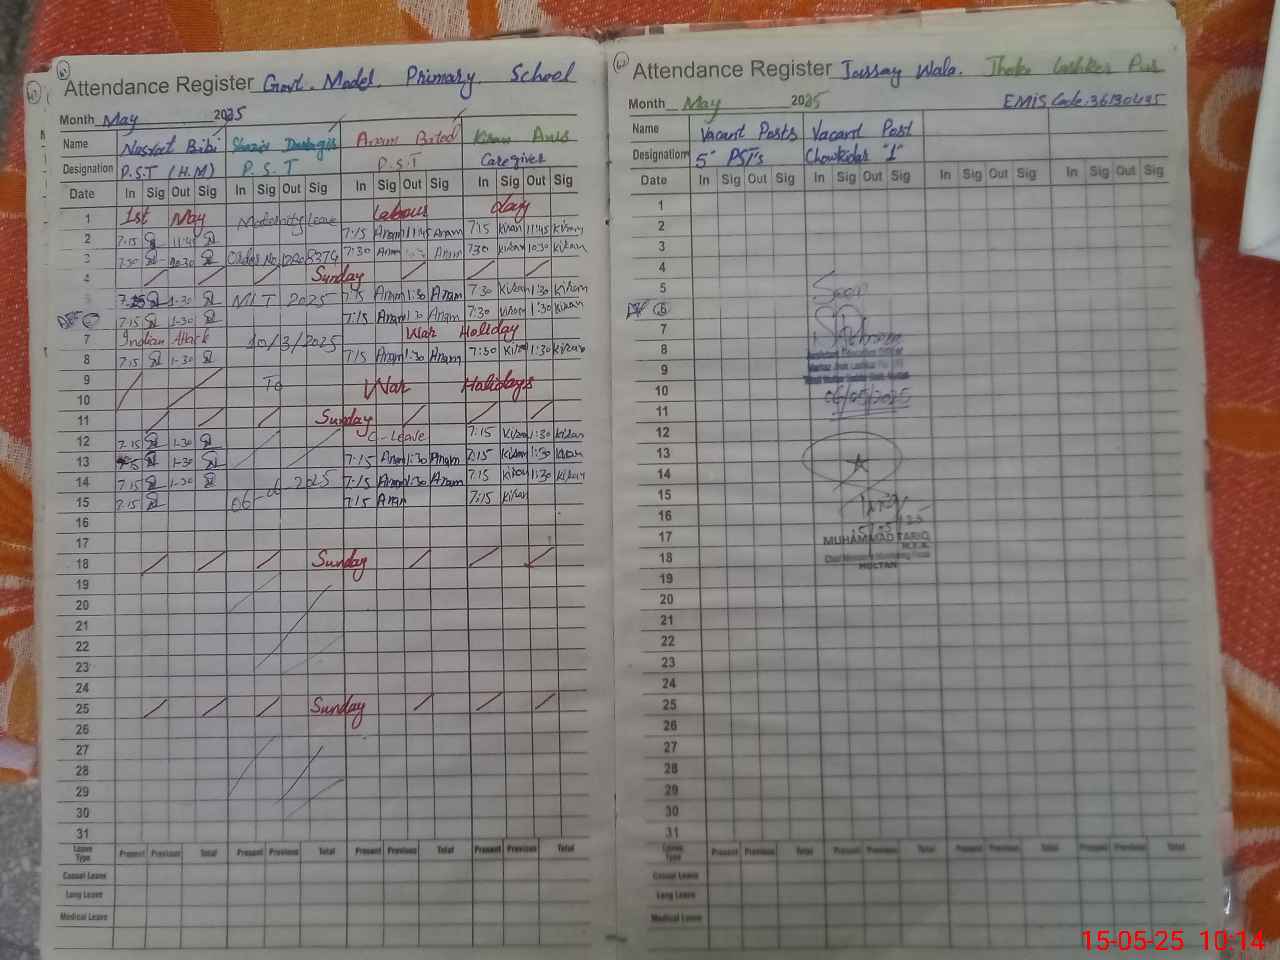 Attendance Register Govt. Model Primary School
Month May 2025
Name Nasreet Bibi Shazia Anam Kiran Anis
Designation P.S.T (H.M) P.S.T P.S.T Caregiver
Date In Sig Out Sig In Sig Out Sig In Sig Out Sig In Sig Out Sig
1 1st May Maternity Leave Labour day
2 7:15 11:45 7:15 Anam 11:45 Anam 7:15 Kiran 11:45 Kiran
3 7:30 10:30 Order No 7:30 Anam Anam 7:30 Kiran 10:30 Kiran
4 Sunday
5 1-30 2025 7:15 Anam 1:30 Anam 7:30 Kiran 1:30 Kiran
6 7:15 1-30 7:15 Anam 1:30 Anam 7:30 Kiran 1:30 Kiran
7 Indian Attack 10/3/2025 War Holiday
8 7:15 1-30 7:15 Anam 1:30 Anam 7:30 Kiran 1:30 Kiran
9 To War Holidays
10
11 Sunday
12 7:15 1-30 C-Leave 7:15 Kiran 1:30 Kiran
13 1-30 7:15 Anam 1:30 Anam 7:15 Kiran 1:30 Kiran
14 7:15 1-30 2025 7:15 Anam 1:30 Anam 7:15 Kiran 1:30 Kiran
15 7:15 06- 7:15 Anam 7:15 Kiran
16
17
18 Sunday
19
20
21
22
23
24
25 Sunday
26
27
28
29
30
31
Leave Type Present Previous Total Present Previous Total Present Previous Total Present Previous Total
Casual Leave
Long Leave
Medical Leave
Attendance Register Jassay Wala.
Month May 2025 EMIS Code: 
Name Vacant Posts Vacant Post
Designation 5" PSTs Chowkidar "1"
Date In Sig Out Sig In Sig Out Sig In Sig Out Sig In Sig Out Sig
1
2
3
4
5 Seen
6
7
8
9
10 06/05/2025
11
12
13
14
15
16
17 MUHAMMAD TARIQ
18 MULTAN
19
20
21
22
23
24
25
26
27
28
29
30
31
Leave Type Present Previous Total Present Previous Total Present Previous Total Present Previous Total
Casual Leave
Long Leave
Medical Leave
15-05-25 10:14